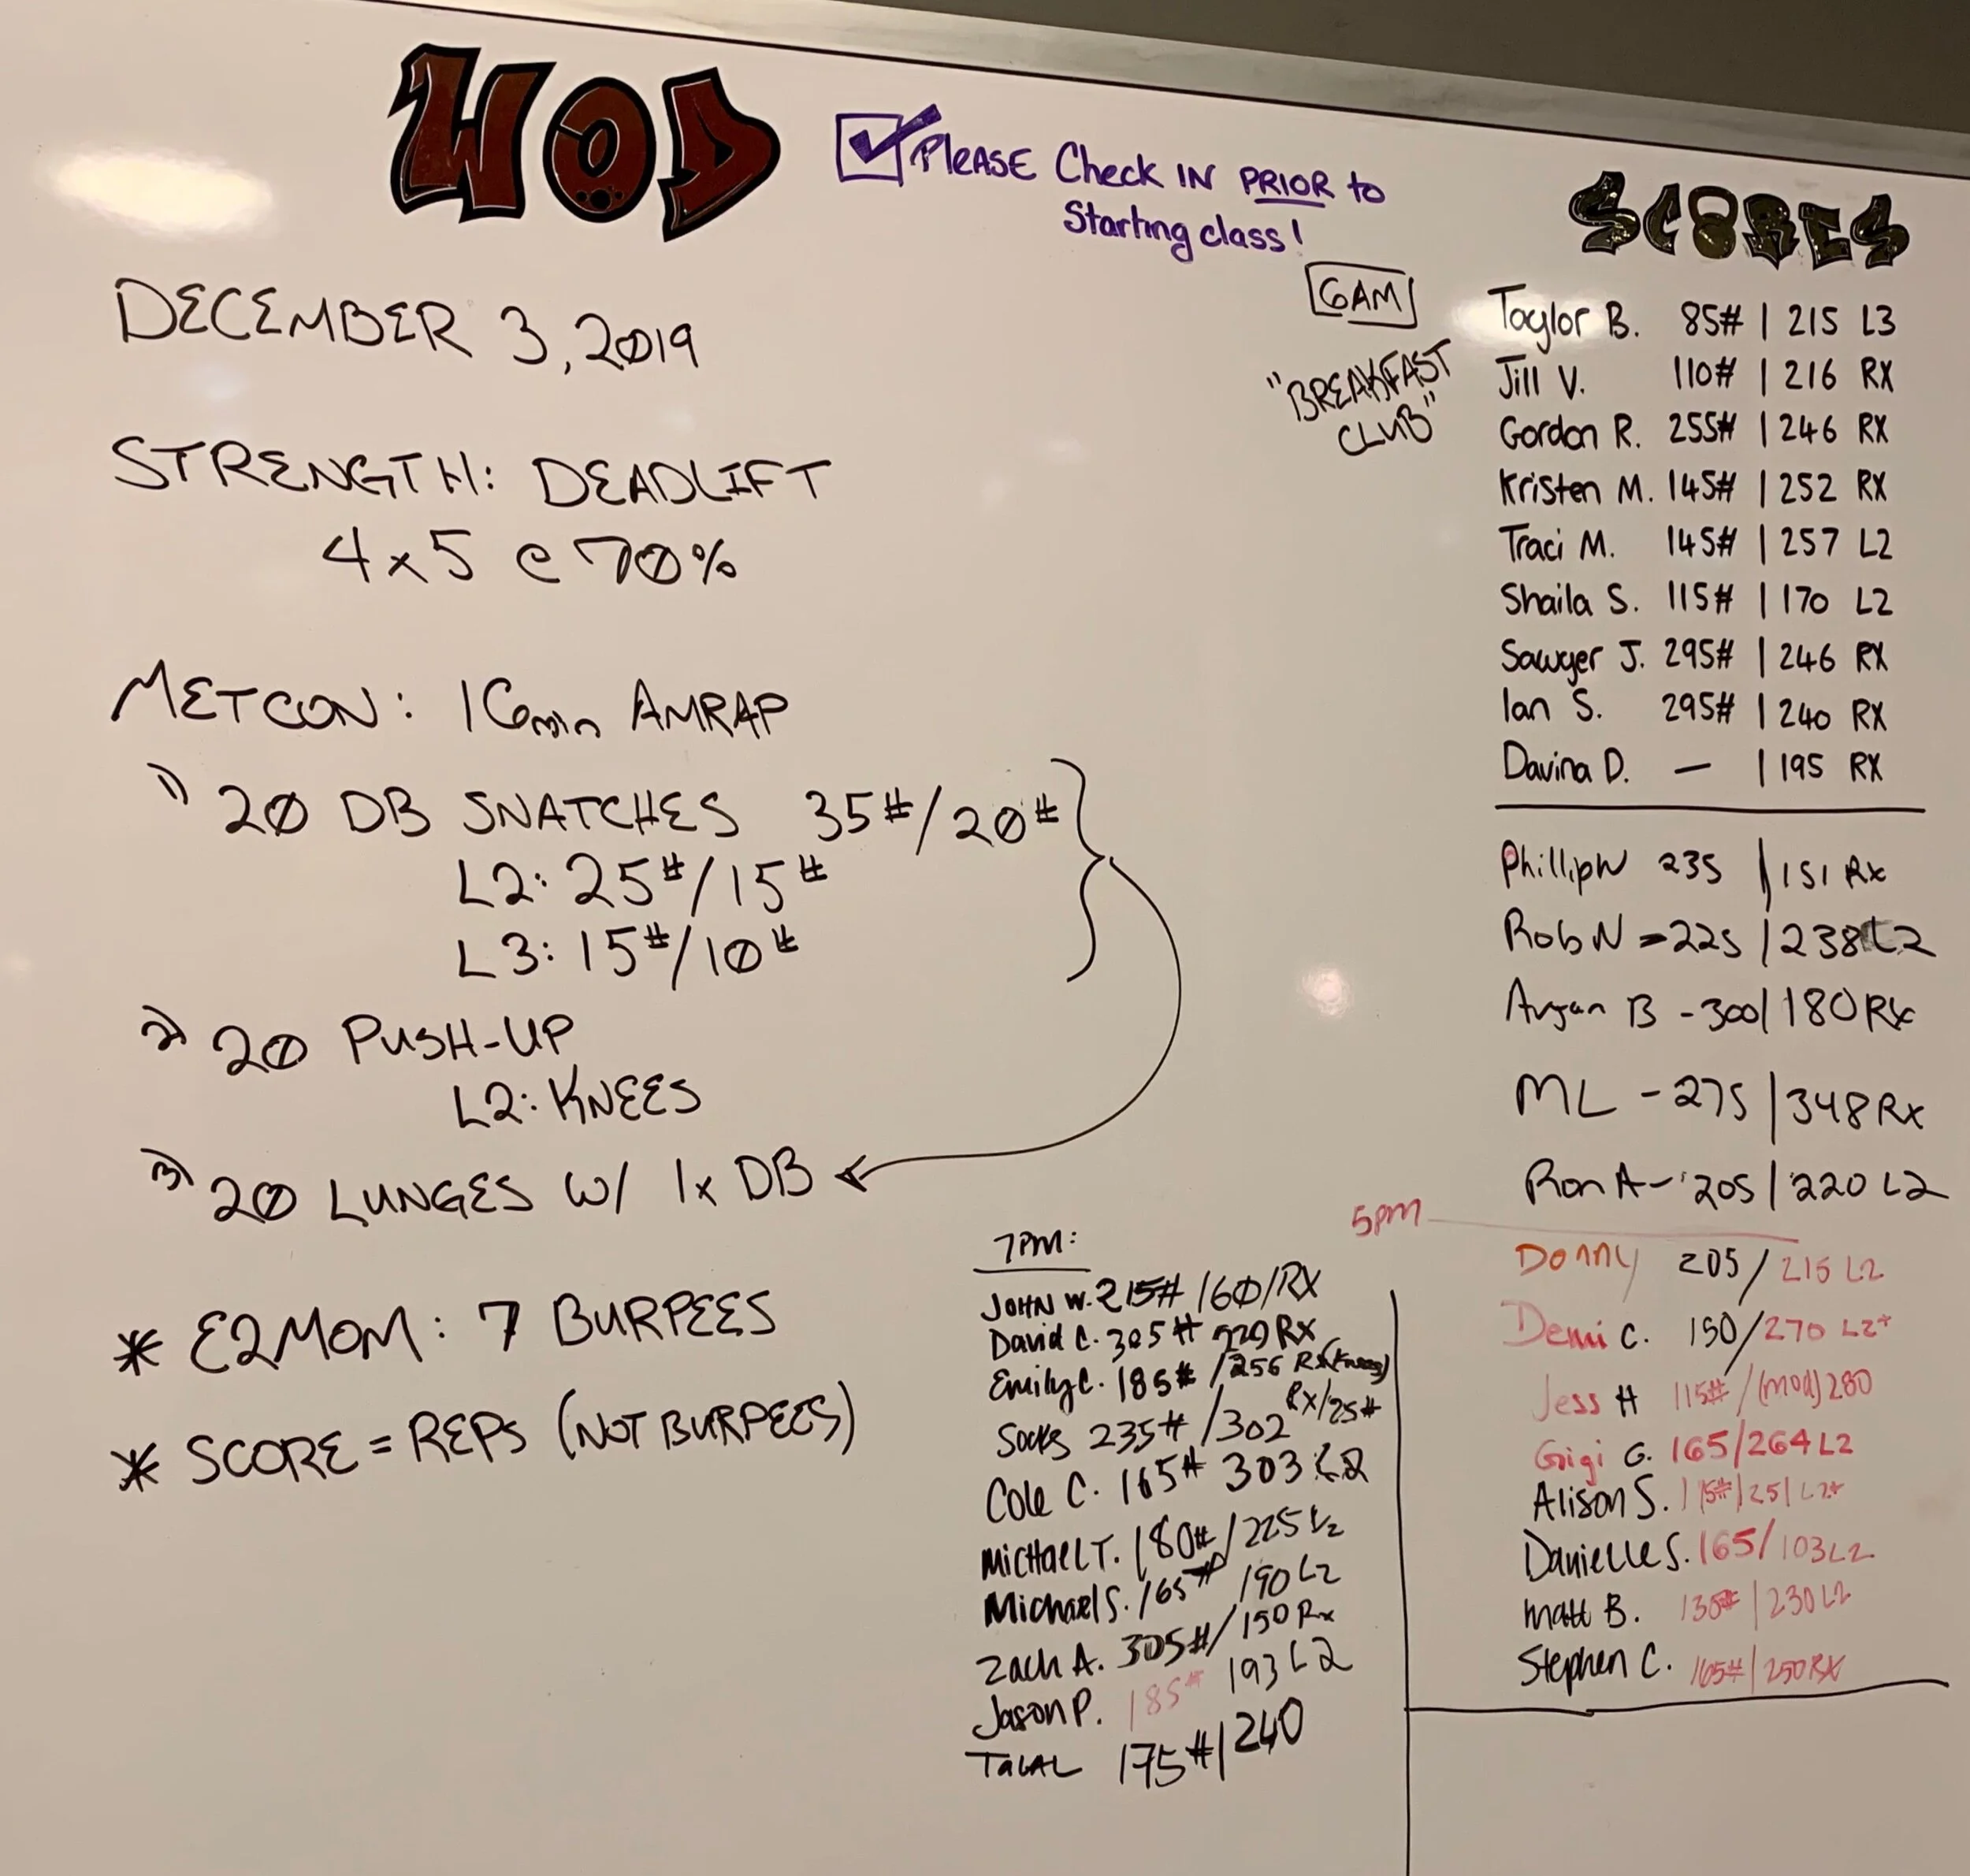 WOD
PLEASE Check IN PRIOR to
Starting class!
DECEMBER 3, 2019
STRENGTH: DEADLIFT
4x5 @ 70%
METCON: 16min AMRAP
1) 20 DB SNATCHES 35#/20#
L2: 25#/15#
L3: 15#/10#
2) 20 PUSH-UP
L2: KNEES
3) 20 LUNGES W/ 1x DB
* E2MOM: 7 BURPEES
* SCORE = REPS (NOT BURPEES)
SCORES
6AM
"BREAKFAST
CLUB"
Taylor B. 85# | 215 L3
Jill V. 110# | 216 RX
Gordon R. 255# | 246 RX
Kristen M. 145# | 252 RX
Traci M. 145# | 257 L2
Shaila S. 115# | 170 L2
Sawyer J. 295# | 246 RX
Ian S. 295# | 240 RX
Davina D. — | 195 RX
Phillip W 235 | 151 Rx
Rob N - 225 | 238 L2
B - 300 | 180 Rx
ML - 275 | 348 Rx
Ron A - 205 | 220 L2
5pm
Donny 205 / 215 L2
Demi C. 150/270 L2+
Jess H 115# / (mod) 280
Gigi G. 165/264 L2
Alison S. 115# | 251 L2+
Danielle S. 165/103 L2
Matt B. | 230 L2
Stephen C. 165# | 250 RX
7PM:
JOHN W. 215# /160/RX
David C. 305# RX
Emily C. 185# /256 Rx (Knees)
Socks 235# /302 Rx/25#
Cole C. 165# 303 L2
Michael T. 180# / 225 L2
Michael S. 165# 190 L2
Zach A. 305# / 150 Rx
Jason P. 185# 193 L2
TALAL 175# | 240